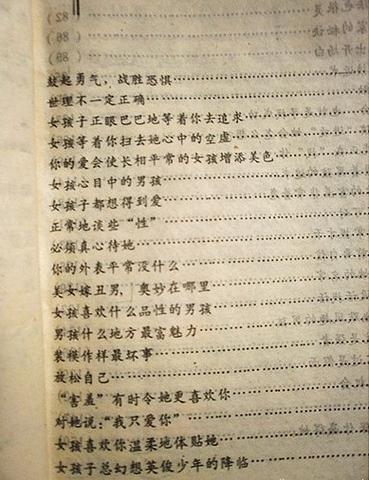 鼓起勇气，战胜恐惧
世理不一定正确
女孩子正眼巴巴地等着你去追求
女孩等着你扫去她心中的空虚
你的爱会使长相平常的女孩增添美色
女孩心目中的男孩
女孩子都想得到爱
正常地谈些“性”
必须真心待她
你的外表平常没什么
美女嫁丑男，奥妙在哪里
女孩喜欢什么品性的男孩
男孩什么地方最富魅力
装模作样最坏事
放松自己
“害羞”有时令她更喜欢你
对她说：“我只爱你”
女孩喜欢你温柔地体贴她
女孩子总幻想英俊少年的降临